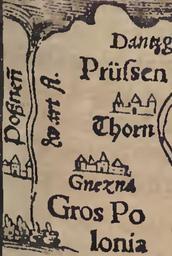 Dantzg
Prüſsen
Thorn
Gnezna
Gros Po
lonia
Wart fl.